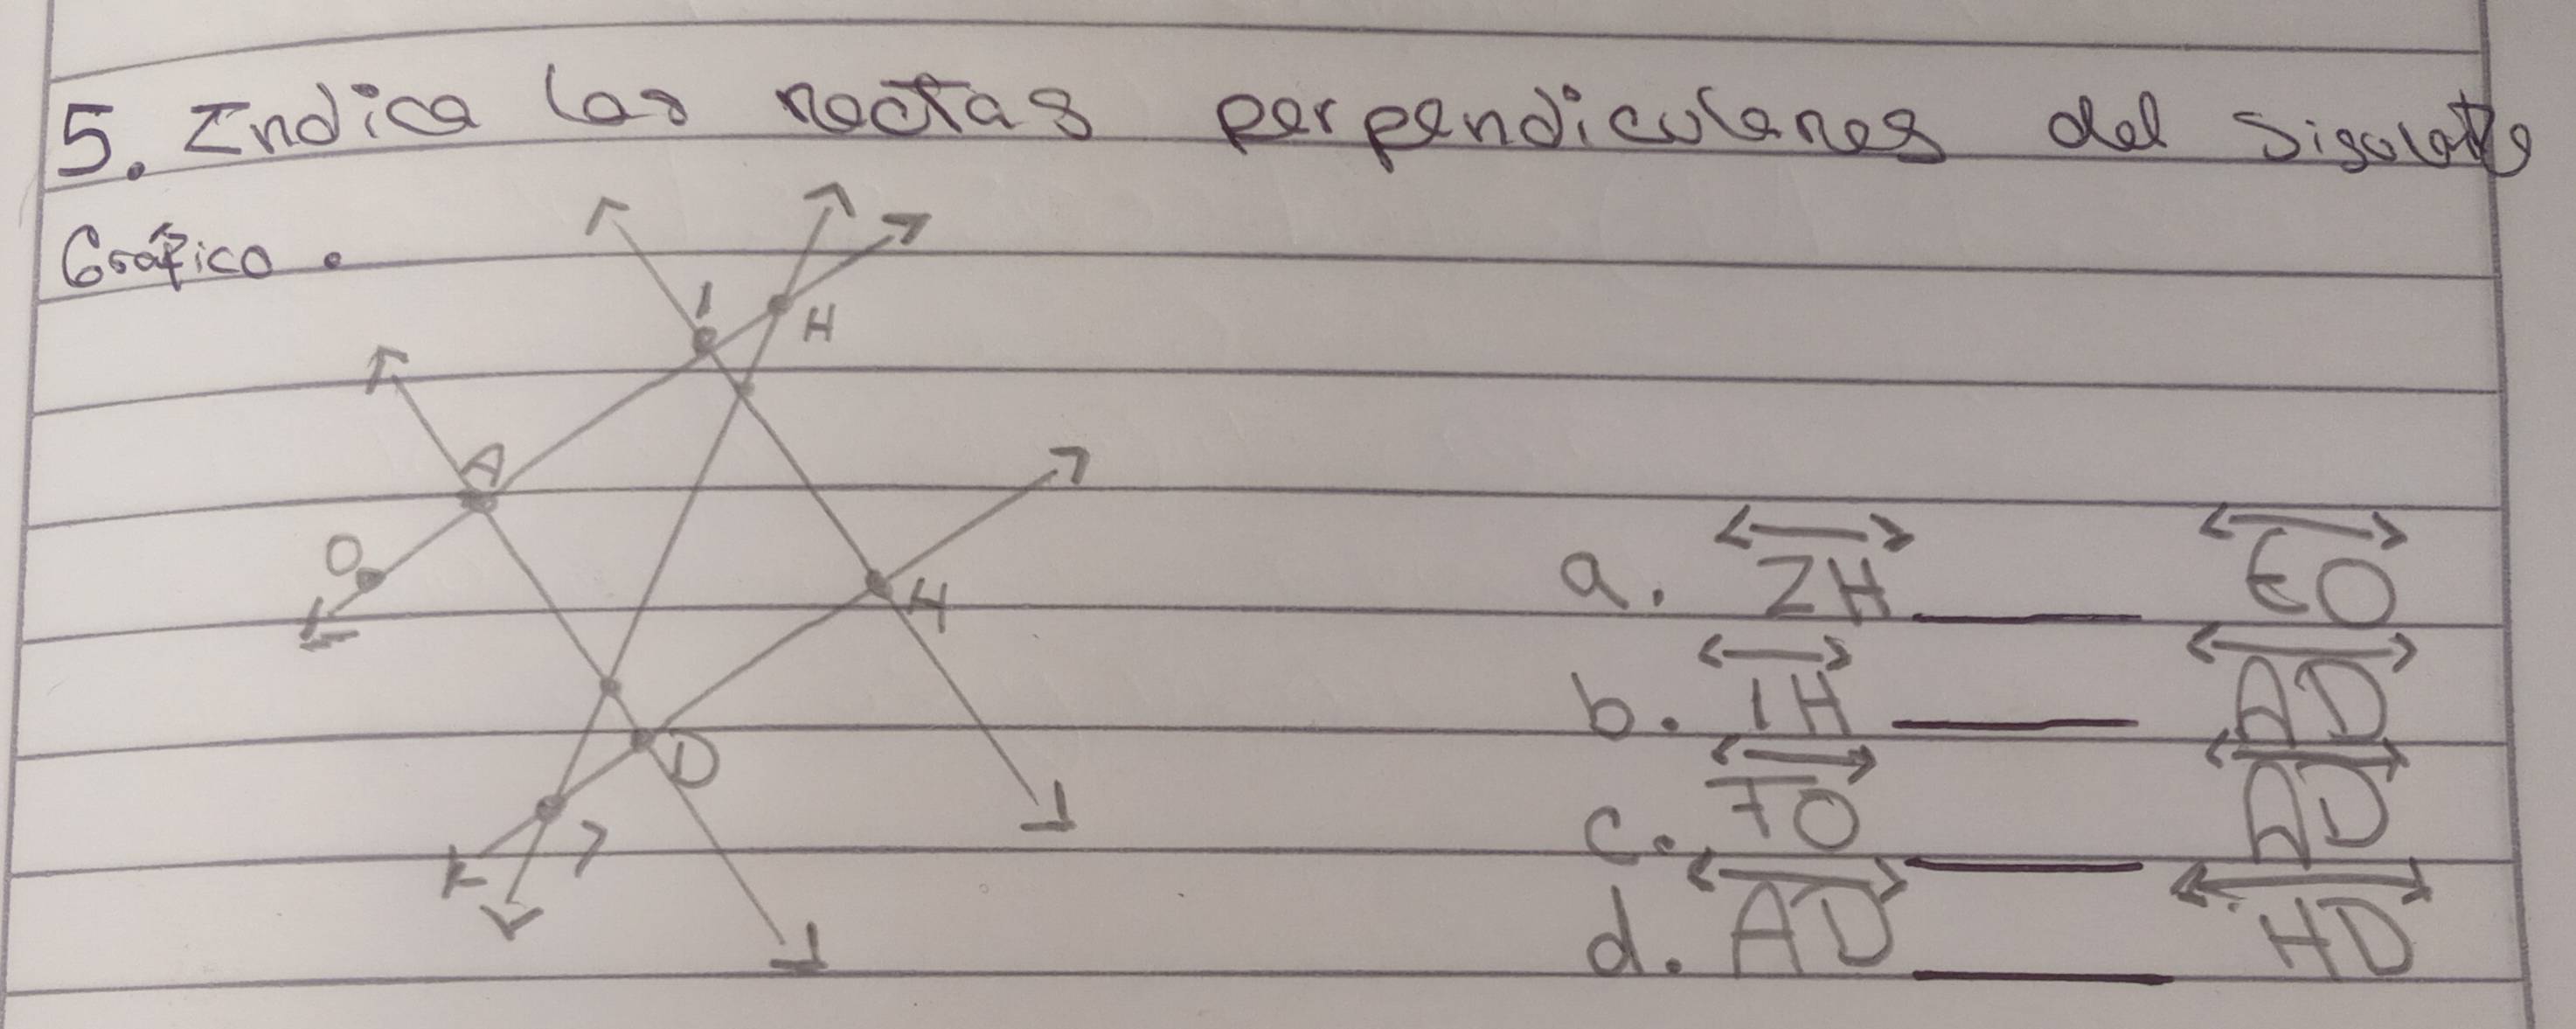 5. Indica las rectas perpendiculares del
Gráfico.
I H
A
O
H
D
K
a. ZH ____ EO
b. IH ____ AD
c. FO ____ AD
d. AD ____ HD